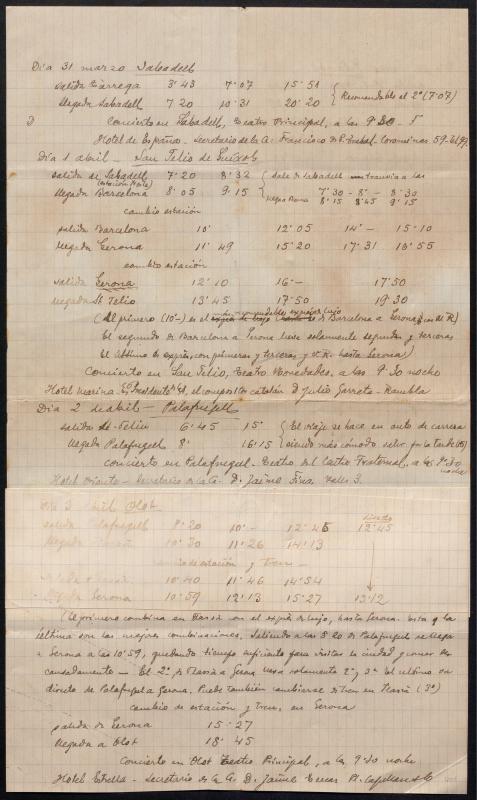 Dia 31 marzo Sabadell
salida Tárrega 3'43 7'07 15'51
llegada Sabadell 7'20 10'31 20'20 (Recomendable el 2º (7'07)
Concierto en Sabadell, Teatro Principal, a las 9'30
Hotel de España. Secretario de la A. Francisco de P.
Dia 1 abril - San Felio de Guixols
salida de Sabadell 7'20 8'32 (Sale de Sabadell tranvia a las
(Estación Norte)
llegada Barcelona 8'05 9'15 7'30 - 8' - 8'30
llega Bna 8'15 8'45 9'15
cambio estación
salida Barcelona 10' 12'05 14' - 15'10
llegada Gerona 11'49 15'20 17'31 18'55
cambio estación
salida Gerona 12'10 16'- 17'50
llegada St Felio 13'45 17'50 19'30
(El primero (10'-) es el de Barcelona a Gerona
El segundo de Barcelona a Gerona lleva solamente segundas y terceras
El último es expres, con primeras y terceras y W.R. hasta Gerona)
Concierto en San Felio, Teatro Novedades, a las 9'30 noche
Hotel Marina. El Presidente A, el compositor catalán D Julio Garreta - Rambla
Dia 2 de abril - Palafrugell
salida S. Feliu 6'45 15' (El viaje se hace en auto de carrera
llegada Palafrugell 8' 16'15 siendo más cómodo salir por la tarde (15)
Concierto en Palafrugell. Teatro del Centro Fraternal, a las 9'30
noche
Hotel Oriente - Secretario de la A. D. Jaime Valls 3.
Dia 3 abril Olot
directo
salida Palafrugell 8'20 10'- 12'45 12'45
llegada Flassá 10'30 11'26 14'13
cambio de estación y tren -
salida Flassá 10'40 11'46 14'54
llegada Gerona 10'59 12'13 15'27 13'12
(El primero combina en Flassá con el expres de lujo, hasta Gerona. Esta y la
última son las mejores combinaciones. Saliendo a las 8'20 de Palafrugell se llega
a Gerona a las 10'59, quedando tiempo suficiente para visitar la ciudad y comer
- El 2º de Flassá a Gerona lleva solamente 2ª y 3ª El último es
directo de Palafrugell a Gerona. Puede tambien cambiarse de tren en Flassá (3º)
cambio de estación y tren, en Gerona
salida de Gerona 15'27
llegada a Olot 18'45
Concierto en Olot Teatro Principal, a las 9'30 noche
Hotel Estrella - Secretario de la A. D. Jaime